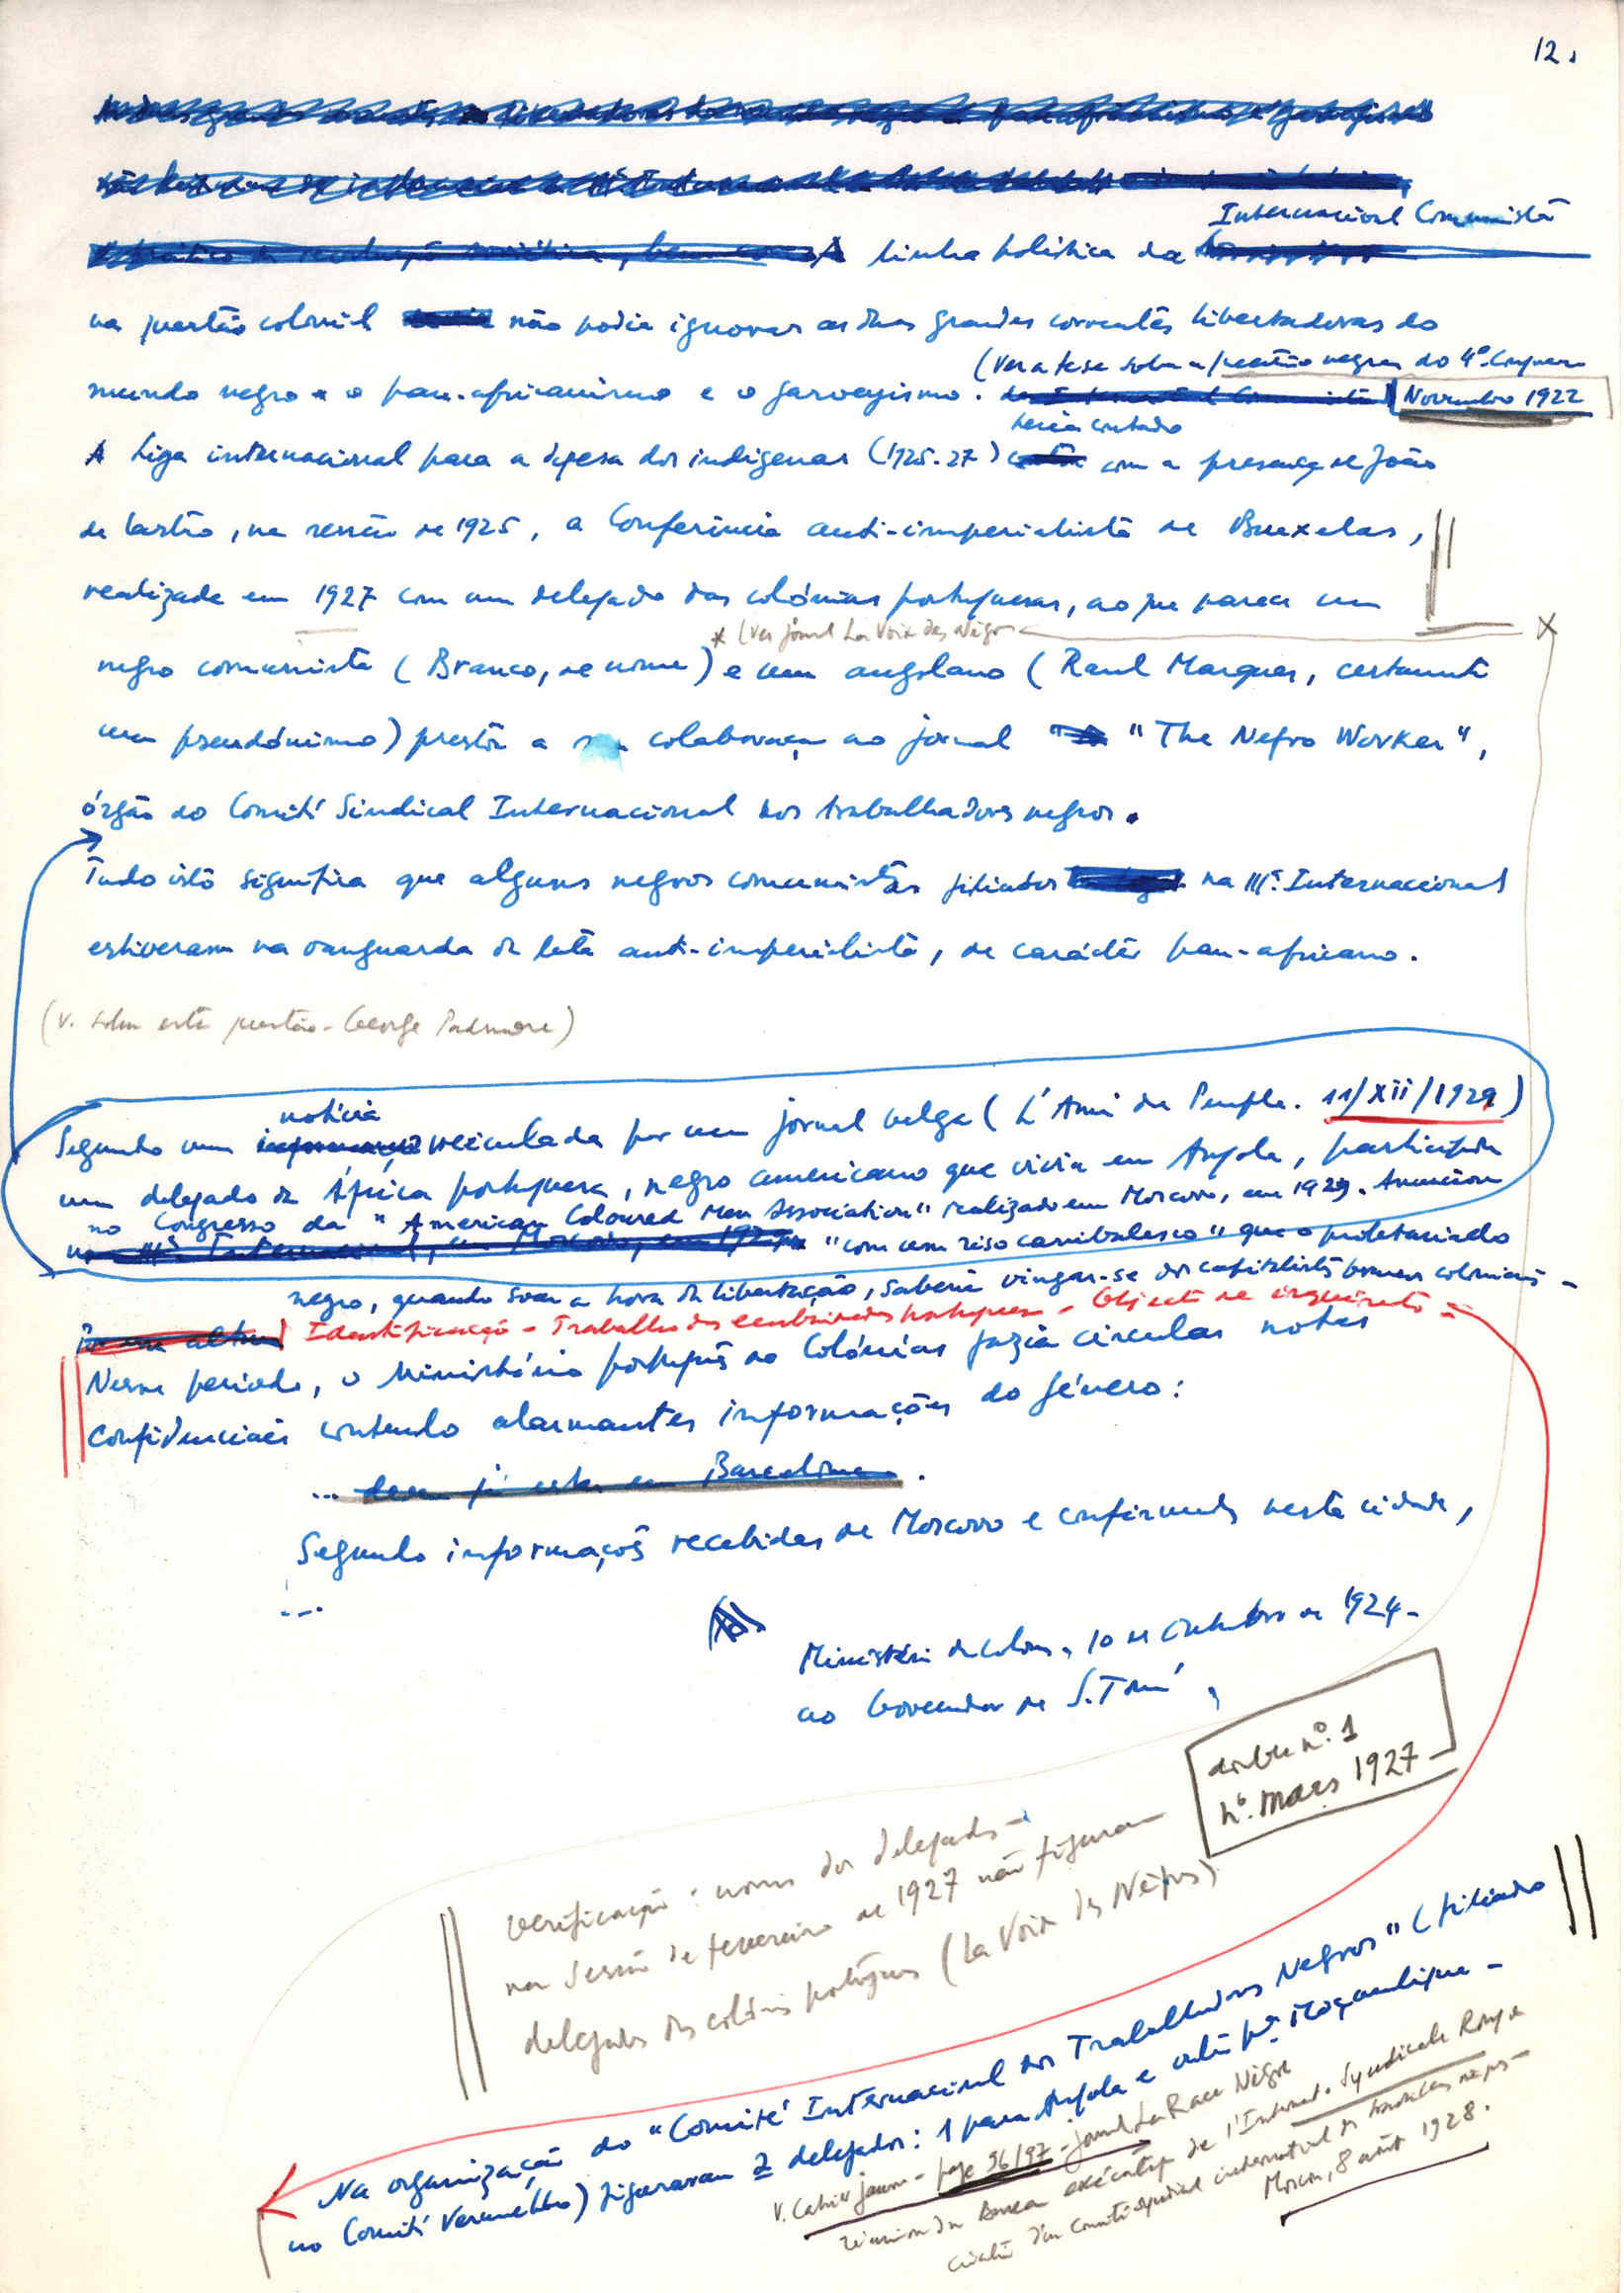 12.
Internacional Comunista
linha política da
na questão colonial não podia ignorar as duas grandes correntes libertadoras do
(Ver a tese sobre a questão negra do 4º Congresso
mundo negro o pan-africanismo e o garveyismo. Novembro 1922
teria contado
A Liga internacional para a defesa dos indígenas (1925-27) com a presença de João
de Castro, na sessão de 1925, a Conferência anti-imperialista de Bruxelas,
realizada em 1927 com um delegado das colónias portuguesas, ao que parece um
* (Ver jornal La Voix des Nègres
negro comunista (Branco, de nome) e um angolano (Raul Marques, certamente
um pseudónimo) presta a sua colaboração ao jornal "The Negro Worker",
órgão do Comité Sindical Internacional dos trabalhadores negros.
Tudo isto significa que alguns negros comunistas filiados na IIIª Internacional
estiveram na vanguarda da luta anti-imperialista, de carácter pan-africano.
(V. sobre esta questão - George Padmore)
notícia
Segundo uma veiculada por um jornal belga (L'Ami du Peuple. 11/XII/1929)
um delegado da África portuguesa, negro americano que vivia em Angola, participou
no Congresso da "American Coloured Men Association" realizado em Moscovo, em 1929. Anunciou
na IIIª Internacional, em Moscovo, em 1929 "com um riso canibalesco" que o proletariado
negro, quando soar a hora da libertação, saberá vingar-se dos capitalistas brancos coloniais -
Identificação - Trabalho das portugueses - Objecto de inquérito -
Nesse período, o Ministério português das Colónias fazia circular notas
confidenciais contendo alarmantes informações do género:
... devem já estar em Barcelona.
Segundo informações recebidas de Moscovo e confirmadas nesta cidade,
...
Ministério das Colónias, 10 de Outubro de 1924-
ao Governador de S. Tomé
nº. 1
nº. mars 1927
Verificação: nomes dos delegados -
na sessão de fevereiro de 1927 não figuram
delegados das colónias portuguesas (La Voix des Nègres)
Na organização do "Comité Internacional dos Trabalhadores Negros" (filiado
no Comité Vermelho) figuraram 2 delegados: 1 para Angola e outro pª Moçambique -
V. Cahier jaune - page 96/97 - journal La Race Nègre
réunion du Bureau exécutif de l'Internat. Syndicale Rouge
création d'un Comité syndical international des travailleurs nègres -
Moscou, 8 août 1928.